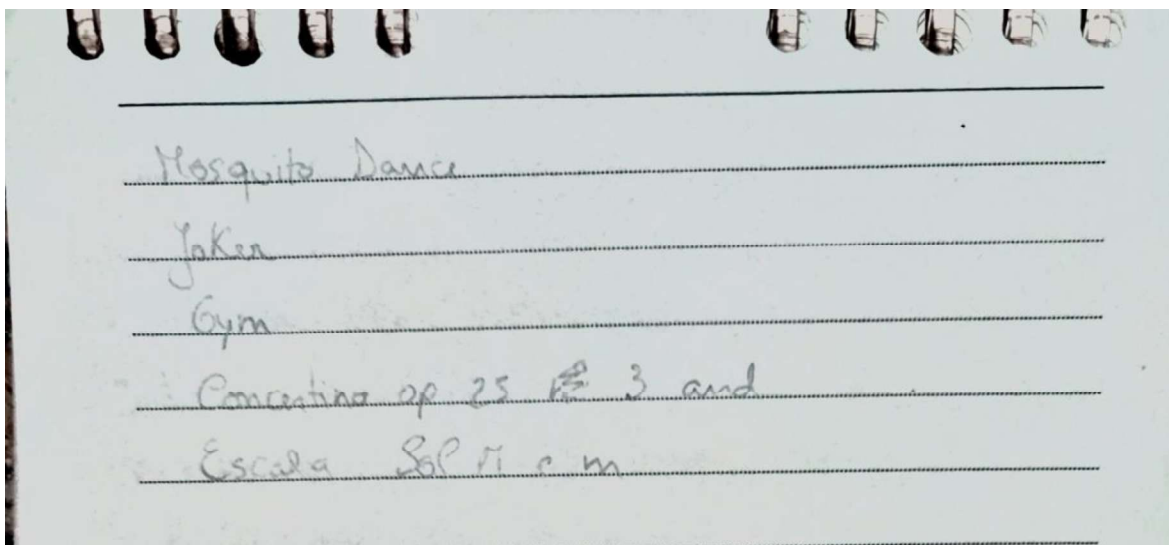 Mosquito Dance
Joker
Gym
Concertino op 25 3 and
Escala Sol M e m